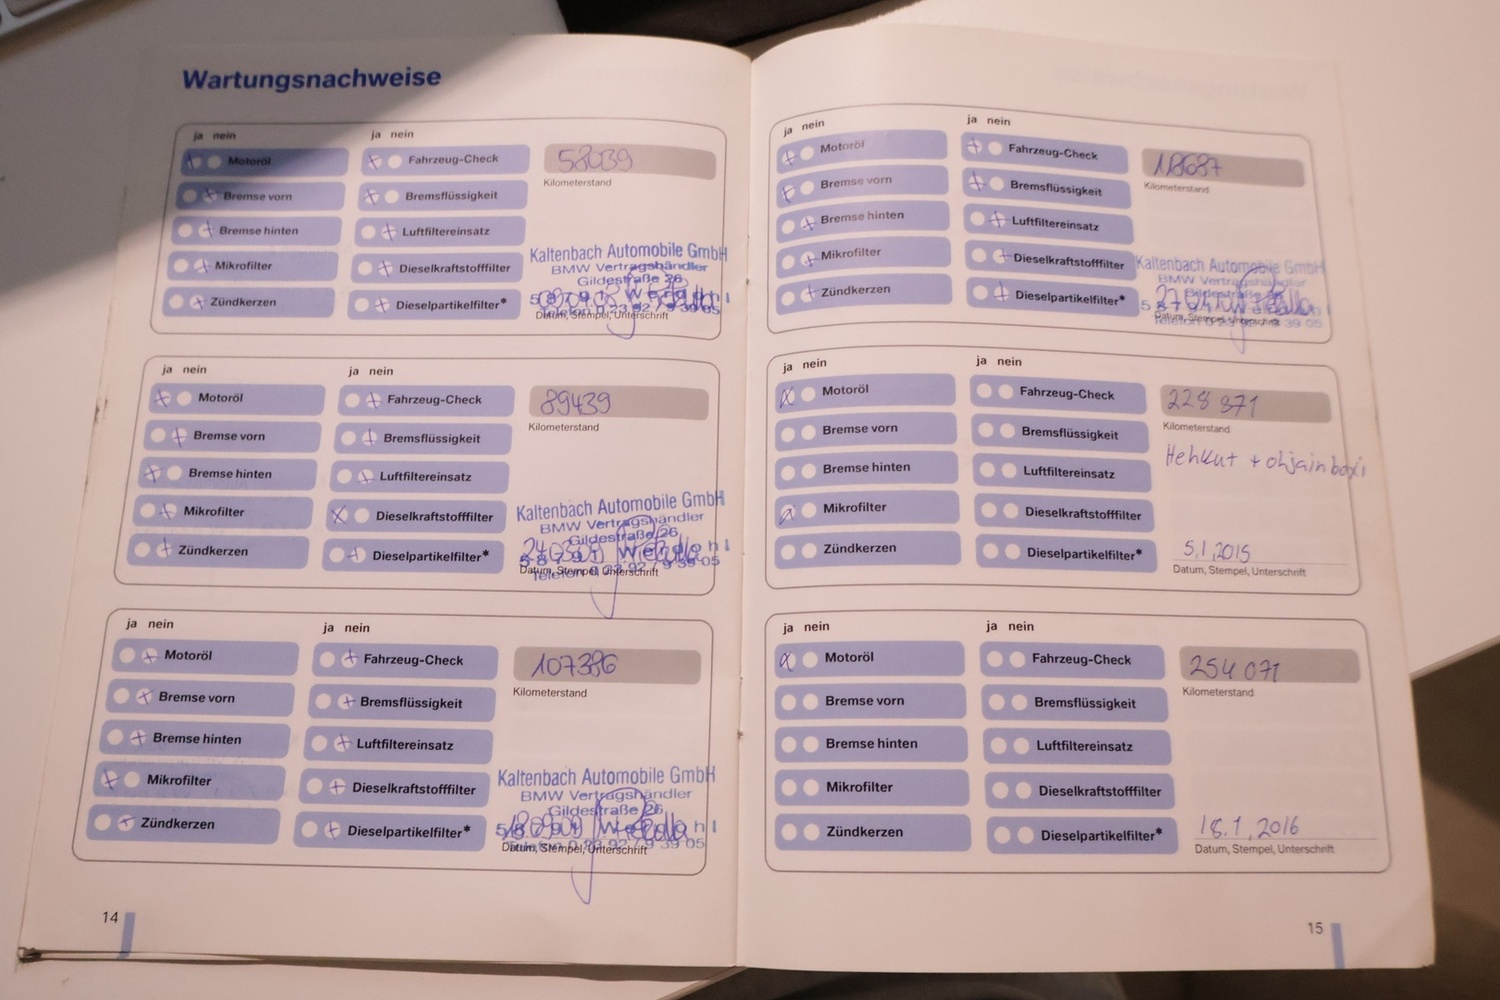 Wartungsnachweise
ja nein
ja nein
Motoröl
Fahrzeug-Check
58039
Bremse vorn
Bremsflüssigkeit
Kilometerstand
Bremse hinten
Luftfiltereinsatz
Mikrofilter
Dieselkraftstofffilter
Zündkerzen
Dieselpartikelfilter*
Kaltenbach Automobile GmbH
BMW Vertragshändler
Gildestraße 26
Datum, Stempel, Unterschrift
ja nein
ja nein
Motoröl
Fahrzeug-Check
89439
Bremse vorn
Bremsflüssigkeit
Kilometerstand
Bremse hinten
Luftfiltereinsatz
Mikrofilter
Dieselkraftstofffilter
Zündkerzen
Dieselpartikelfilter*
Kaltenbach Automobile GmbH
BMW Vertragshändler
Gildestraße 26
Datum, Stempel, Unterschrift
ja nein
ja nein
Motoröl
Fahrzeug-Check
107386
Bremse vorn
Bremsflüssigkeit
Kilometerstand
Bremse hinten
Luftfiltereinsatz
Mikrofilter
Dieselkraftstofffilter
Zündkerzen
Dieselpartikelfilter*
Kaltenbach Automobile GmbH
BMW Vertragshändler
Gildestraße 26
Datum, Stempel, Unterschrift
14
ja nein
ja nein
Motoröl
Fahrzeug-Check
Bremse vorn
Bremsflüssigkeit
Kilometerstand
Bremse hinten
Luftfiltereinsatz
Mikrofilter
Dieselkraftstofffilter
Zündkerzen
Dieselpartikelfilter*
Kaltenbach Automobile GmbH
BMW Vertragshändler
Gildestraße 26
Datum, Stempel, Unterschrift
ja nein
ja nein
Motoröl
Fahrzeug-Check
228 871
Bremse vorn
Bremsflüssigkeit
Kilometerstand
Bremse hinten
Luftfiltereinsatz
Mikrofilter
Dieselkraftstofffilter
Zündkerzen
Dieselpartikelfilter*
5.1.2015
Datum, Stempel, Unterschrift
ja nein
ja nein
Motoröl
Fahrzeug-Check
254 071
Bremse vorn
Bremsflüssigkeit
Kilometerstand
Bremse hinten
Luftfiltereinsatz
Mikrofilter
Dieselkraftstofffilter
Zündkerzen
Dieselpartikelfilter*
18.1.2016
Datum, Stempel, Unterschrift
15